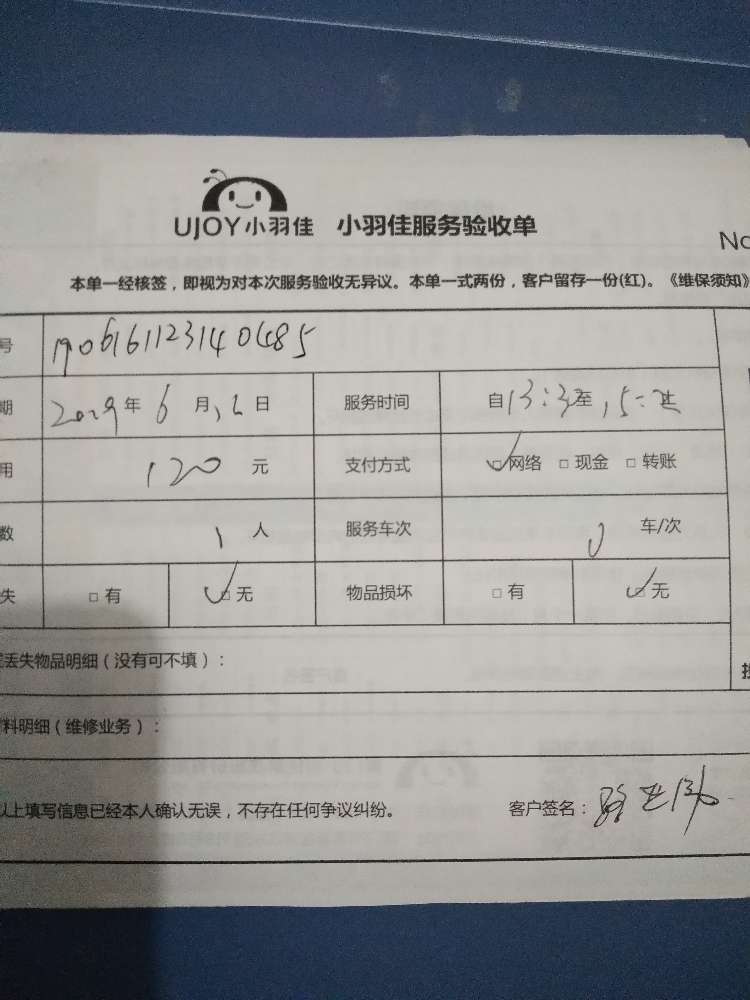 UJOY小羽佳 小羽佳服务验收单
No
本单一经核签，即视为对本次服务验收无异议。本单一式两份，客户留存一份(红)。《维保须知》
号 190616112314 0485
期 2019年 6 月 16 日 服务时间 自13:3至
用 120 元 支付方式 □网络 □现金 □转账
数 1 人 服务车次 车/次
失 □有 □无 物品损坏 □有 □无
丢失物品明细（没有可不填）：
料明细（维修业务）：
以上填写信息已经本人确认无误，不存在任何争议纠纷。 客户签名：